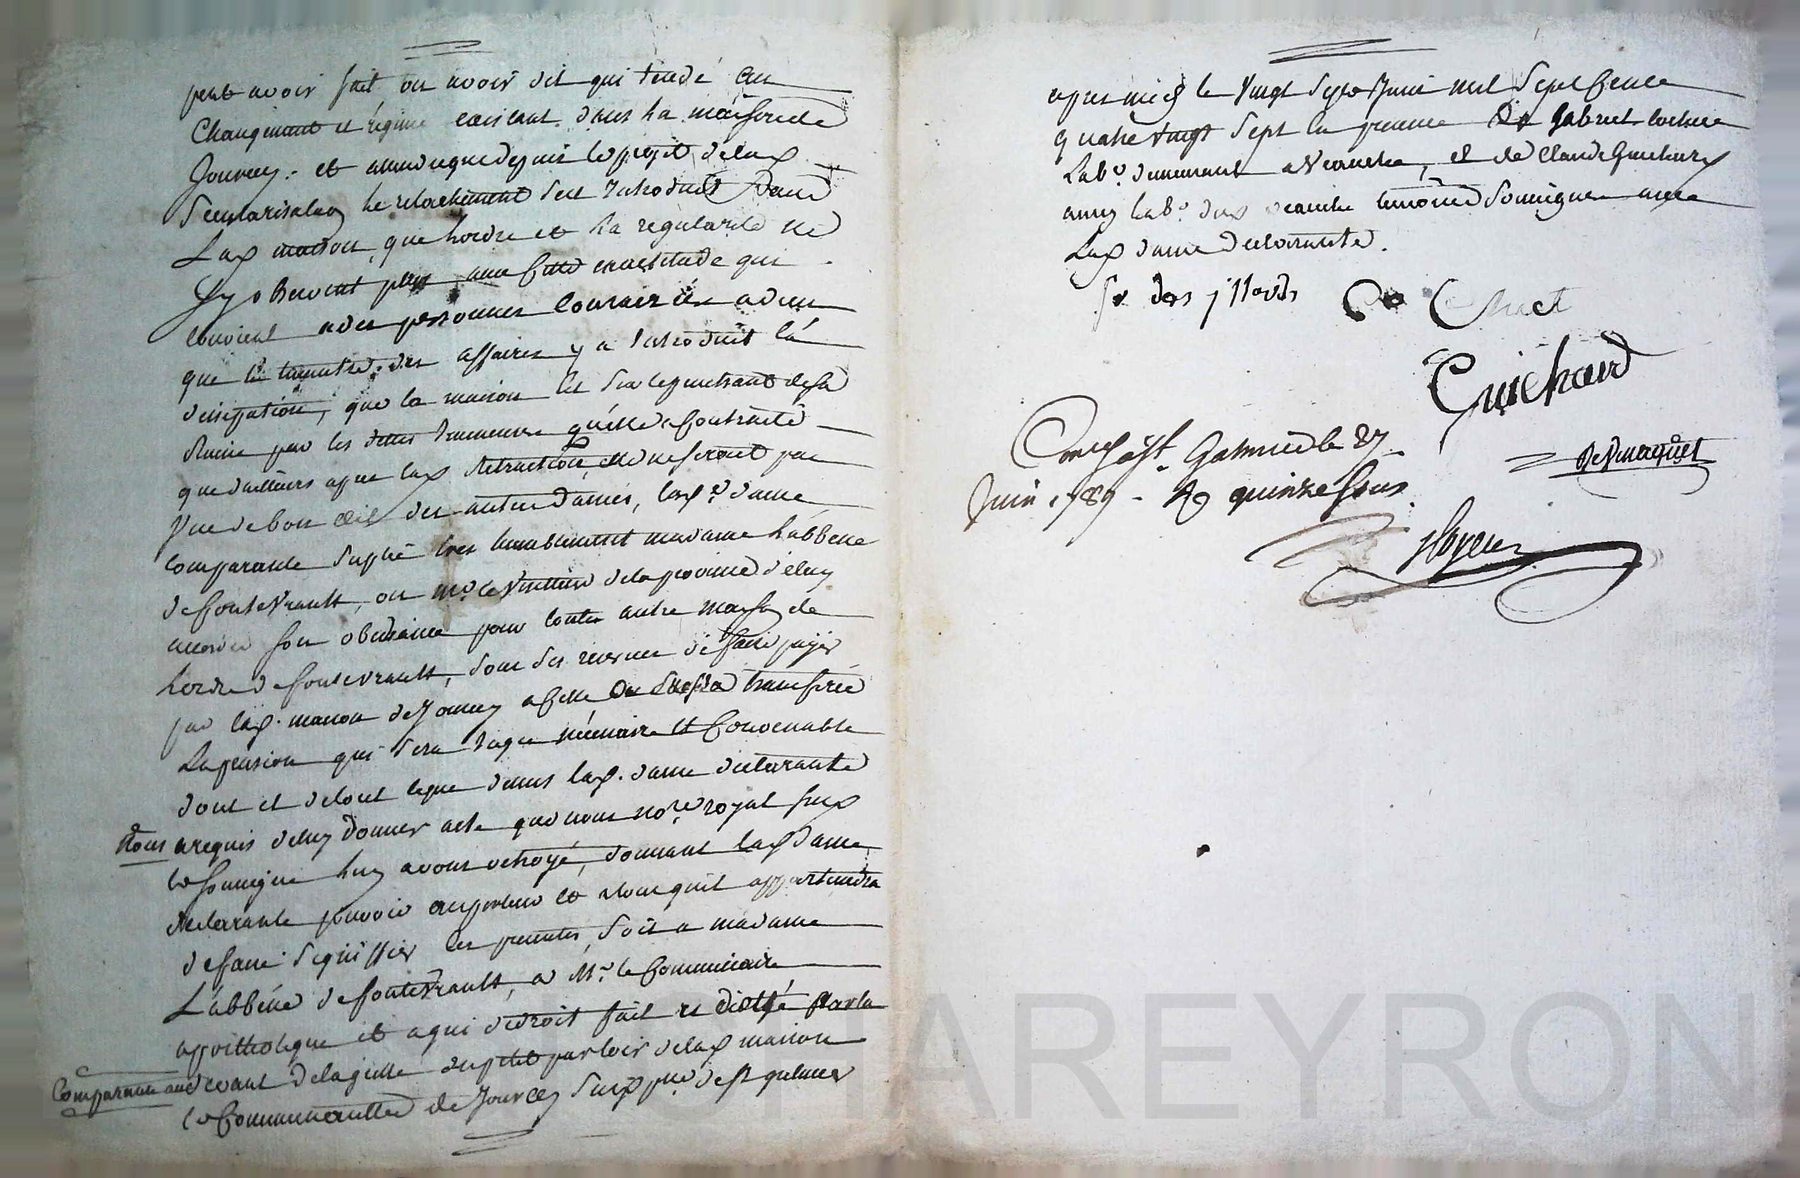 peut avoir fait ou avoir dit qui tende au
changement et régime existant dans la maison de
Jourcey. et attendu que depuis le projet de lad
secularisation le relachement s'est introduit dans
Lad maison, que l'ordre et la regularité ne
s'y observent pas avec cette exactitude qui
convient a des personnes
que le des affaires y a introduit la
dissipation, que la maison est sur le penchant de sa
Ruine par les dettes immenses qu'elle a contracté
que d'ailleurs apres lad retraction, elle ne seroit pas
Vue de bon œil des autres dames, lad.e dame
comparante suplie tres humblement madame l'abbesse
de fontevrault, ou mr. le visiteur de la province d'
accorder son obedience pour toute autre maison de
l'ordre de fontevrault, sous ses reserves de faire payer
par lad. maison de Jourcey a celle ou elle sera transferée
La pension qui sera jugée necessaire et convenable
dont et de tout ce que dessus lad. dame declarante
Nous a requis de luy donner acte que nous no.re royal
soussigné luy avons octroyé, donnant lad dame
declarante pouvoir au porteur et a tous qu'il appartiendra
de faire signiffier les presentes, soit a madame
L'abbesse de fontevrault, a Mr. le Commissaire
appostolique et a qui de droit fait et dicté par la
Comparante au devant de la grille du petit parloir de lad maison
et Communauté de Jourcey
apres midy le vingt sept Juin mil sept cents
quatre vingt sept en presence de Gabriel
Lab.r demeurant a , et de Claude Guichard
aussy lab.r dud temoins soussignés avec
Lad dame declarante.
Guichard
Desmaquet
Con.lé à St. Galmier le 27
Juin 1789 - R quinze sous